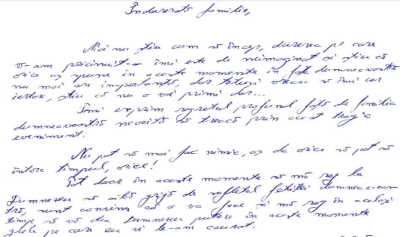 Îndurerată familie,
Nici nu știu cum să încep, durerea pe care
v-am pricinuit-o îmi este de neimaginat și știu că
orice aș spune în aceste momente în fața dumneavoastră
nu mai are importanță, dar totuși vreau să îmi cer
iertare, știu că nu o voi primi dar...
Îmi exprim regretul profund față de familia
dumneavoastră nevoită să treacă prin acest tragic
eveniment.
Nu pot să mai fac nimic, aș da orice să pot să
întorc timpul, orice!
Tot ce pot face în aceste momente să mă rog la
Dumnezeu să aibă grijă de sufletul fetiței dumneavoas-
tră, sunt convins că o va face și mă rog în același
timp să vă dea Dumnezeu putere în aceste momente
grele pe care eu vi le-am cauzat.